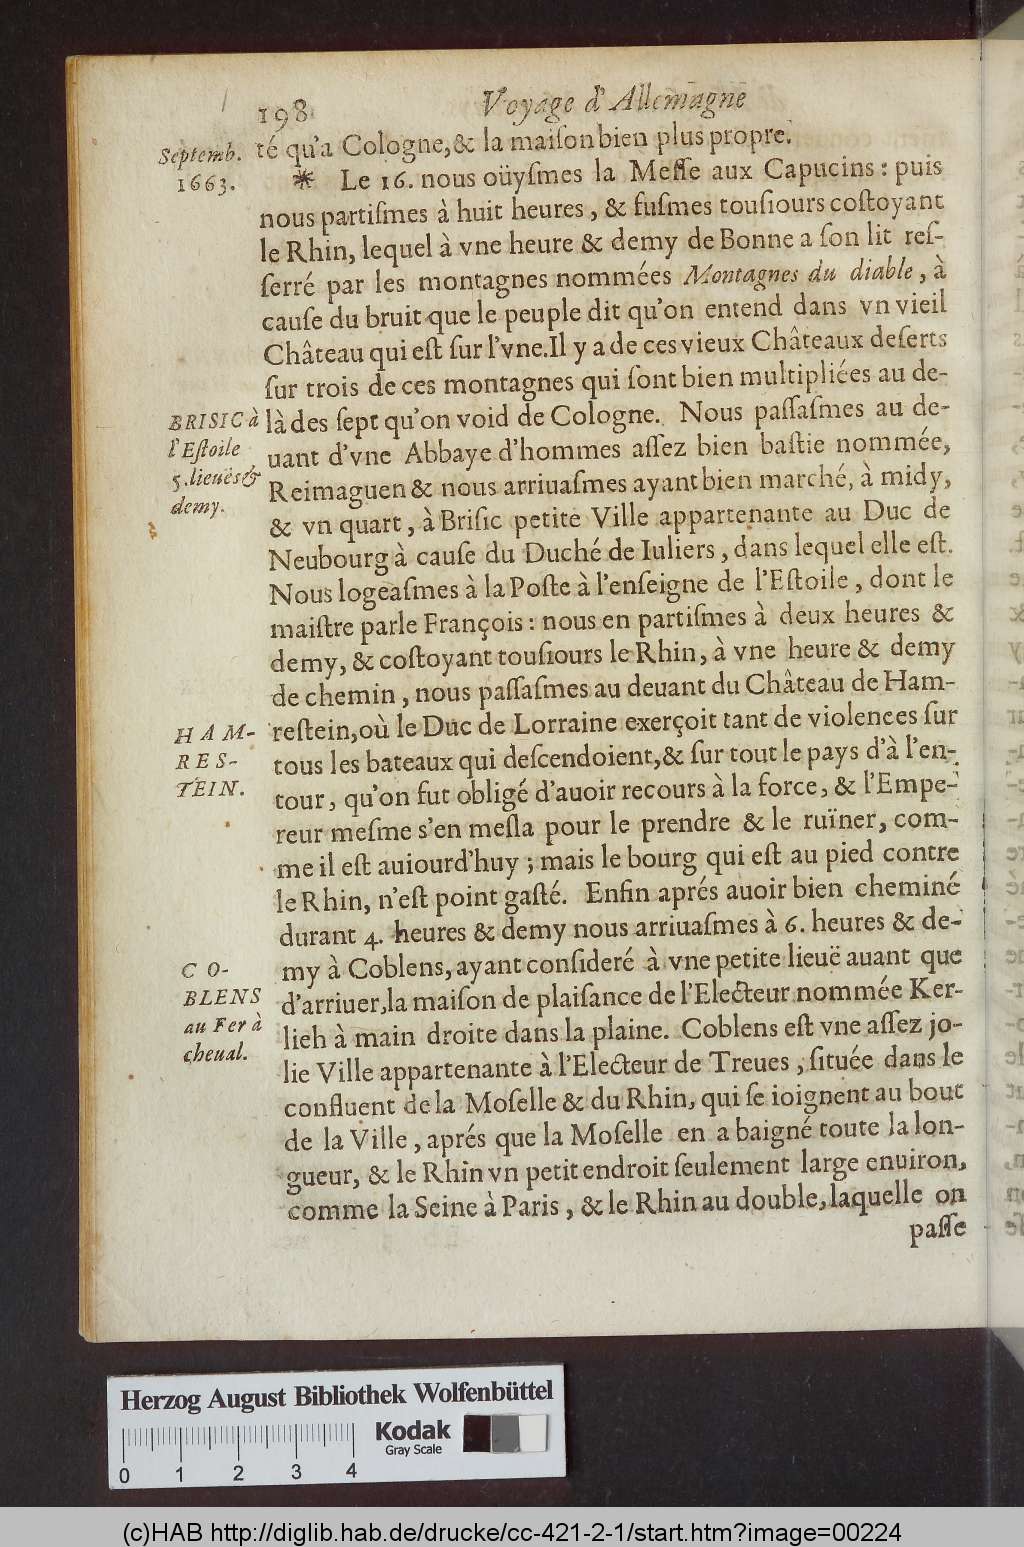 198 Voyage d'Allemagne
Septemb.
1663.
té qu'a Cologne, & la maiſon bien plus propre.
* Le 16. nous oüyſmes la Meſſe aux Capucins : puis
nous partiſmes à huit heures, & fuſmes touſiours coſtoyant
le Rhin, lequel à vne heure & demy de Bonne a ſon lit reſ-
ſerré par les montagnes nommées Montagnes du diable, à
cauſe du bruit que le peuple dit qu'on entend dans vn vieil
Château qui eſt ſur l'vne. Il y a de ces vieux Châteaux deſerts
ſur trois de ces montagnes qui ſont bien multipliées au de-
là des ſept qu'on void de Cologne. Nous paſſaſmes au de-
BRISIC à
l'Eſtoile
5. lieuës &
demy.
uant d'vne Abbaye d'hommes aſſez bien baſtie nommée,
Reimaguen & nous arriuaſmes ayant bien marché, à midy,
& vn quart, à Briſic petite Ville appartenante au Duc de
Neubourg à cauſe du Duché de Iuliers, dans lequel elle eſt.
Nous logeaſmes à la Poſte à l'enſeigne de l'Eſtoile, dont le
maiſtre parle François : nous en partiſmes à deux heures &
demy, & coſtoyant touſiours le Rhin, à vne heure & demy
de chemin, nous paſſaſmes au deuant du Château de Ham-
HAM-
RES-
TEIN.
reſtein, où le Duc de Lorraine exerçoit tant de violences ſur
tous les bateaux qui deſcendoient, & ſur tout le pays d'à l'en-
tour, qu'on fut obligé d'auoir recours à la force, & l'Empe-
reur meſme s'en meſla pour le prendre & le ruïner, com-
me il eſt auiourd'huy ; mais le bourg qui eſt au pied contre
le Rhin, n'eſt point gaſté. Enfin aprés auoir bien cheminé
durant 4. heures & demy nous arriuaſmes à 6. heures & de-
CO-
BLENS
au Fer à
cheual.
my à Coblens, ayant conſideré à vne petite lieuë auant que
d'arriuer, la maiſon de plaiſance de l'Electeur nommée Ker-
lieh à main droite dans la plaine. Coblens eſt vne aſſez jo-
lie Ville appartenante à l'Electeur de Treues, ſituée dans le
confluent de la Moſelle & du Rhin, qui ſe ioignent au bout
de la Ville, aprés que la Moſelle en a baigné toute la lon-
gueur, & le Rhin vn petit endroit ſeulement large enuiron,
comme la Seine à Paris, & le Rhin au double, laquelle on
paſſe
Herzog August Bibliothek Wolfenbüttel
Kodak
Gray Scale
0 1 2 3 4
(c)HAB http://diglib.hab.de/drucke/cc-421-2-1/start.htm?image=00224